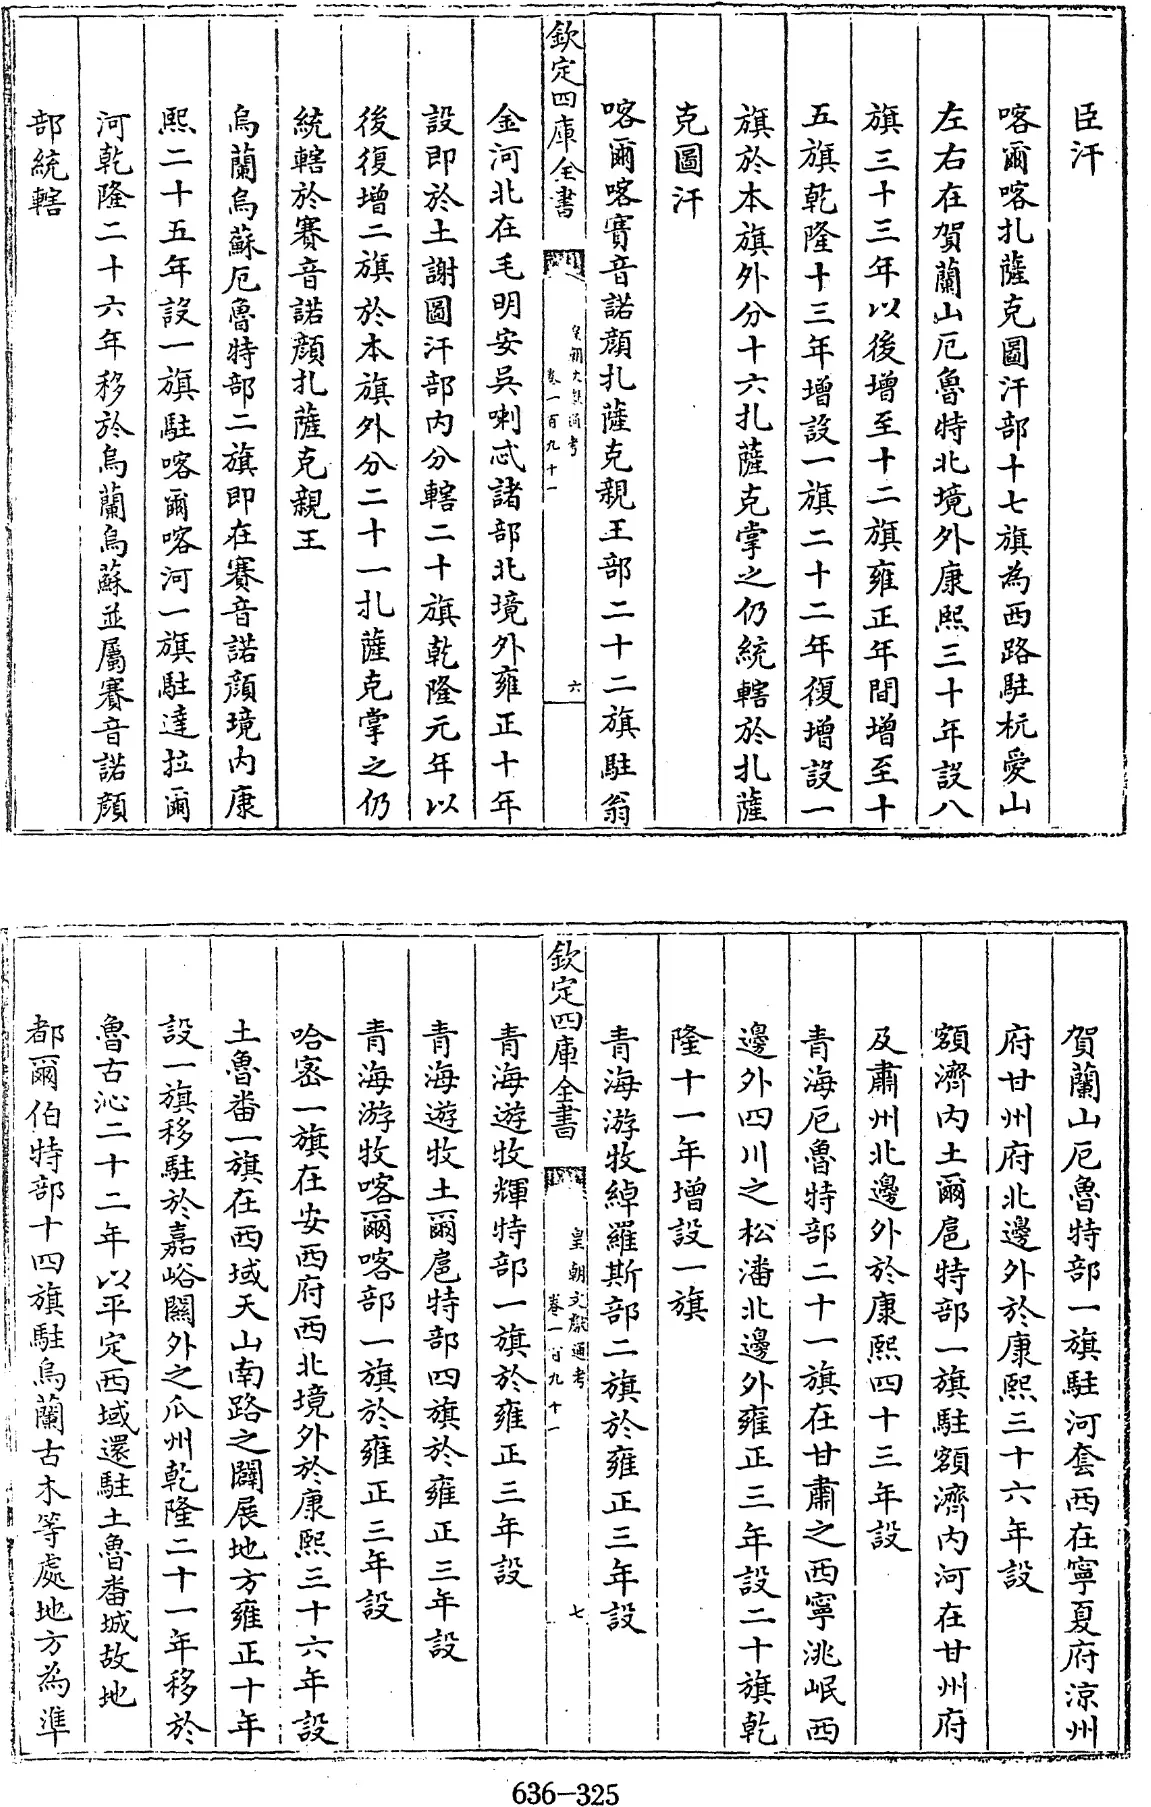 臣汗
喀爾喀扎薩克圖汗部十七旗為西路駐杭愛山
左右在賀蘭山厄魯特北境外康熙三十年設八
旗三十三年以後增至十二旗雍正年間增至十
五旗乾隆十三年增設一旗二十二年復增設一
旗於本旗外分十六扎薩克掌之仍統轄於扎薩
克圖汗
喀爾喀賽音諾顏扎薩克親王部二十二旗駐翁
欽定四庫全書
皇朝文獻通考
卷一百九十一
六
金河北在毛明安吳喇忒諸部北境外雍正十年
設即於土謝圖汗部內分轄二十旗乾隆元年以
後復增二旗於本旗外分二十一扎薩克掌之仍
統轄於賽音諾顏扎薩克親王
烏蘭烏蘇厄魯特部二旗即在賽音諾顏境內康
熙二十五年設一旗駐喀爾喀河一旗駐達拉爾
河乾隆二十六年移於烏蘭烏蘇並屬賽音諾顏
部統轄
賀蘭山厄魯特部一旗駐河套西在寧夏府涼州
府甘州府北邊外於康熙三十六年設
額濟內土爾扈特部一旗駐額濟內河在甘州府
及肅州北邊外於康熙四十三年設
青海厄魯特部二十一旗在甘肅之西寧洮岷西
邊外四川之松潘北邊外雍正三年設二十旗乾
隆十一年增設一旗
青海游牧綽羅斯部二旗於雍正三年設
欽定四庫全書
皇朝文獻通考
卷一百九十一
七
青海遊牧輝特部一旗於雍正三年設
青海遊牧土爾扈特部四旗於雍正三年設
青海游牧喀爾喀部一旗於雍正三年設
哈密一旗在安西府西北境外於康熙三十六年設
土魯番一旗在西域天山南路之闢展地方雍正十年
設一旗移駐於嘉峪關外之瓜州乾隆二十一年移於
魯古沁二十二年以平定西域還駐土魯番城故地
都爾伯特部十四旗駐烏蘭古木等處地方為準
636-325